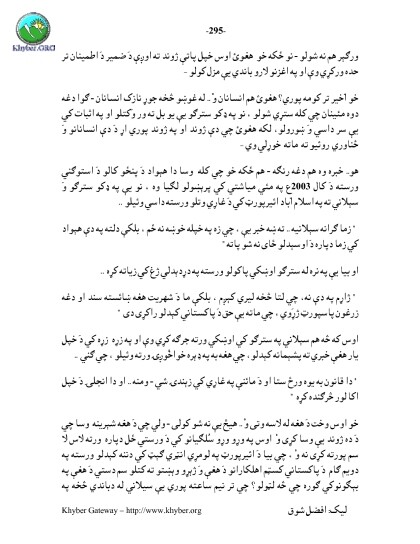 Khyber.ORG
-295-
ورګیر هم نه شولو - نو ځکه خو هغوئ اوس خپل پاتي ژوند ته اوږې دَ ضمیر دَ اطمینان تر
حده ورکړي وې او په اغزنو لارو باندي یې مزل کولو -
خو آخیر تر کومه پوري؟ هغوئ هم انسانان وُ.. له غوښو څخه جوړ نازک انسانان - ګوا دغه
دوه مئینان چي کله ستړي شولو ، نو په ډکو سترګو یې یو بل ته ور وکتلو او په اثبات کي
یې سر داسي وَ ښورولو، لکه هغوئ چي دې ژوند او په ژوند پوري اړ دَ دې انسانانو وَ
ځناوري روئیو ته ماته خوړلي وې -
هو.. خبره وه هم دغه رنګه - هم ځکه خو چي کله وسا دا هېواد دَ پنځو کالو دَ استوګني
ورسته دَ کال 2003ع په مئي میاشتي کي پرېښولو لګیا وه ، نو یې په ډکو سترګو وَ
سېلاني ته په اسلام آباد ائیرپورټ کي دَ غاړي وتلو ورسته داسي وئیلو ..
" زما ګرانه سېلانیه.. ته ښه خبر یې ، چي زه په خپله خوښه نه ځم ، بلکي دلته په دې هېواد
کي زما دپاره دَ اوسېدلو ځای نه شو پاته"
او بیا یې په نره له سترګو اوښکي پاکولو ورسته په درد بدلي ژغ کي زیاته کړه ..
" ژاړم په دې نه، چي لتا څخه لیري کیږم ، بلکي ما دَ شهریت هغه ښائسته سند او دغه
زرغون پاسپورټ ژړوي ، چي ماته یې حق دَ پاکستاني کېدلو راکړی دی "
اوس که څه هم سېلاني په سترګو کي اوښکي ورته جرګه کړي وې او په زړه زړه کي دَ خپل
یار هغي خبري ته پښېمانه کېدلو ، چي هغه به په ډېره خواخوږۍ ورته وئیلو ، چي ګني -
" دا قانون به یوه ورځ ستا او دَ مائني په غاړي کي زېندۍ شي - ومنه .. او دا انجلۍ دَ خپل
اکا لور څرګنده کړه "
خو اوس وخت دَ هغه له لاسه وتی وُ.. هیڅ یې نه شو کولی - ولي چي دَ هغه شېرینه وسا چي
دَ ده ژوند یې وسا کړی وُ اوس په ورو ورو سُلګیانو کي دَ ورستي ځل دپاره ورته لاس لا
سم پورته کړی نه وُ ، چي بیا دَ ائیرپورټ په لومړي انټري ګېټ کي دننه کېدلو ورسته په
دویم ګام دَ پاکستاني کسټم اهلکارانو دَ هغې وَ ژېړو وېښتو ته کتلو سم دستي دَ هغې په
بېګونو کي ګوره چي څه لټولو؟ چي تر نیم ساعته پوري یې سېلاني له دباندي څخه په
Khyber Gateway – http://www.khyber.org
لیک: افضل شوق